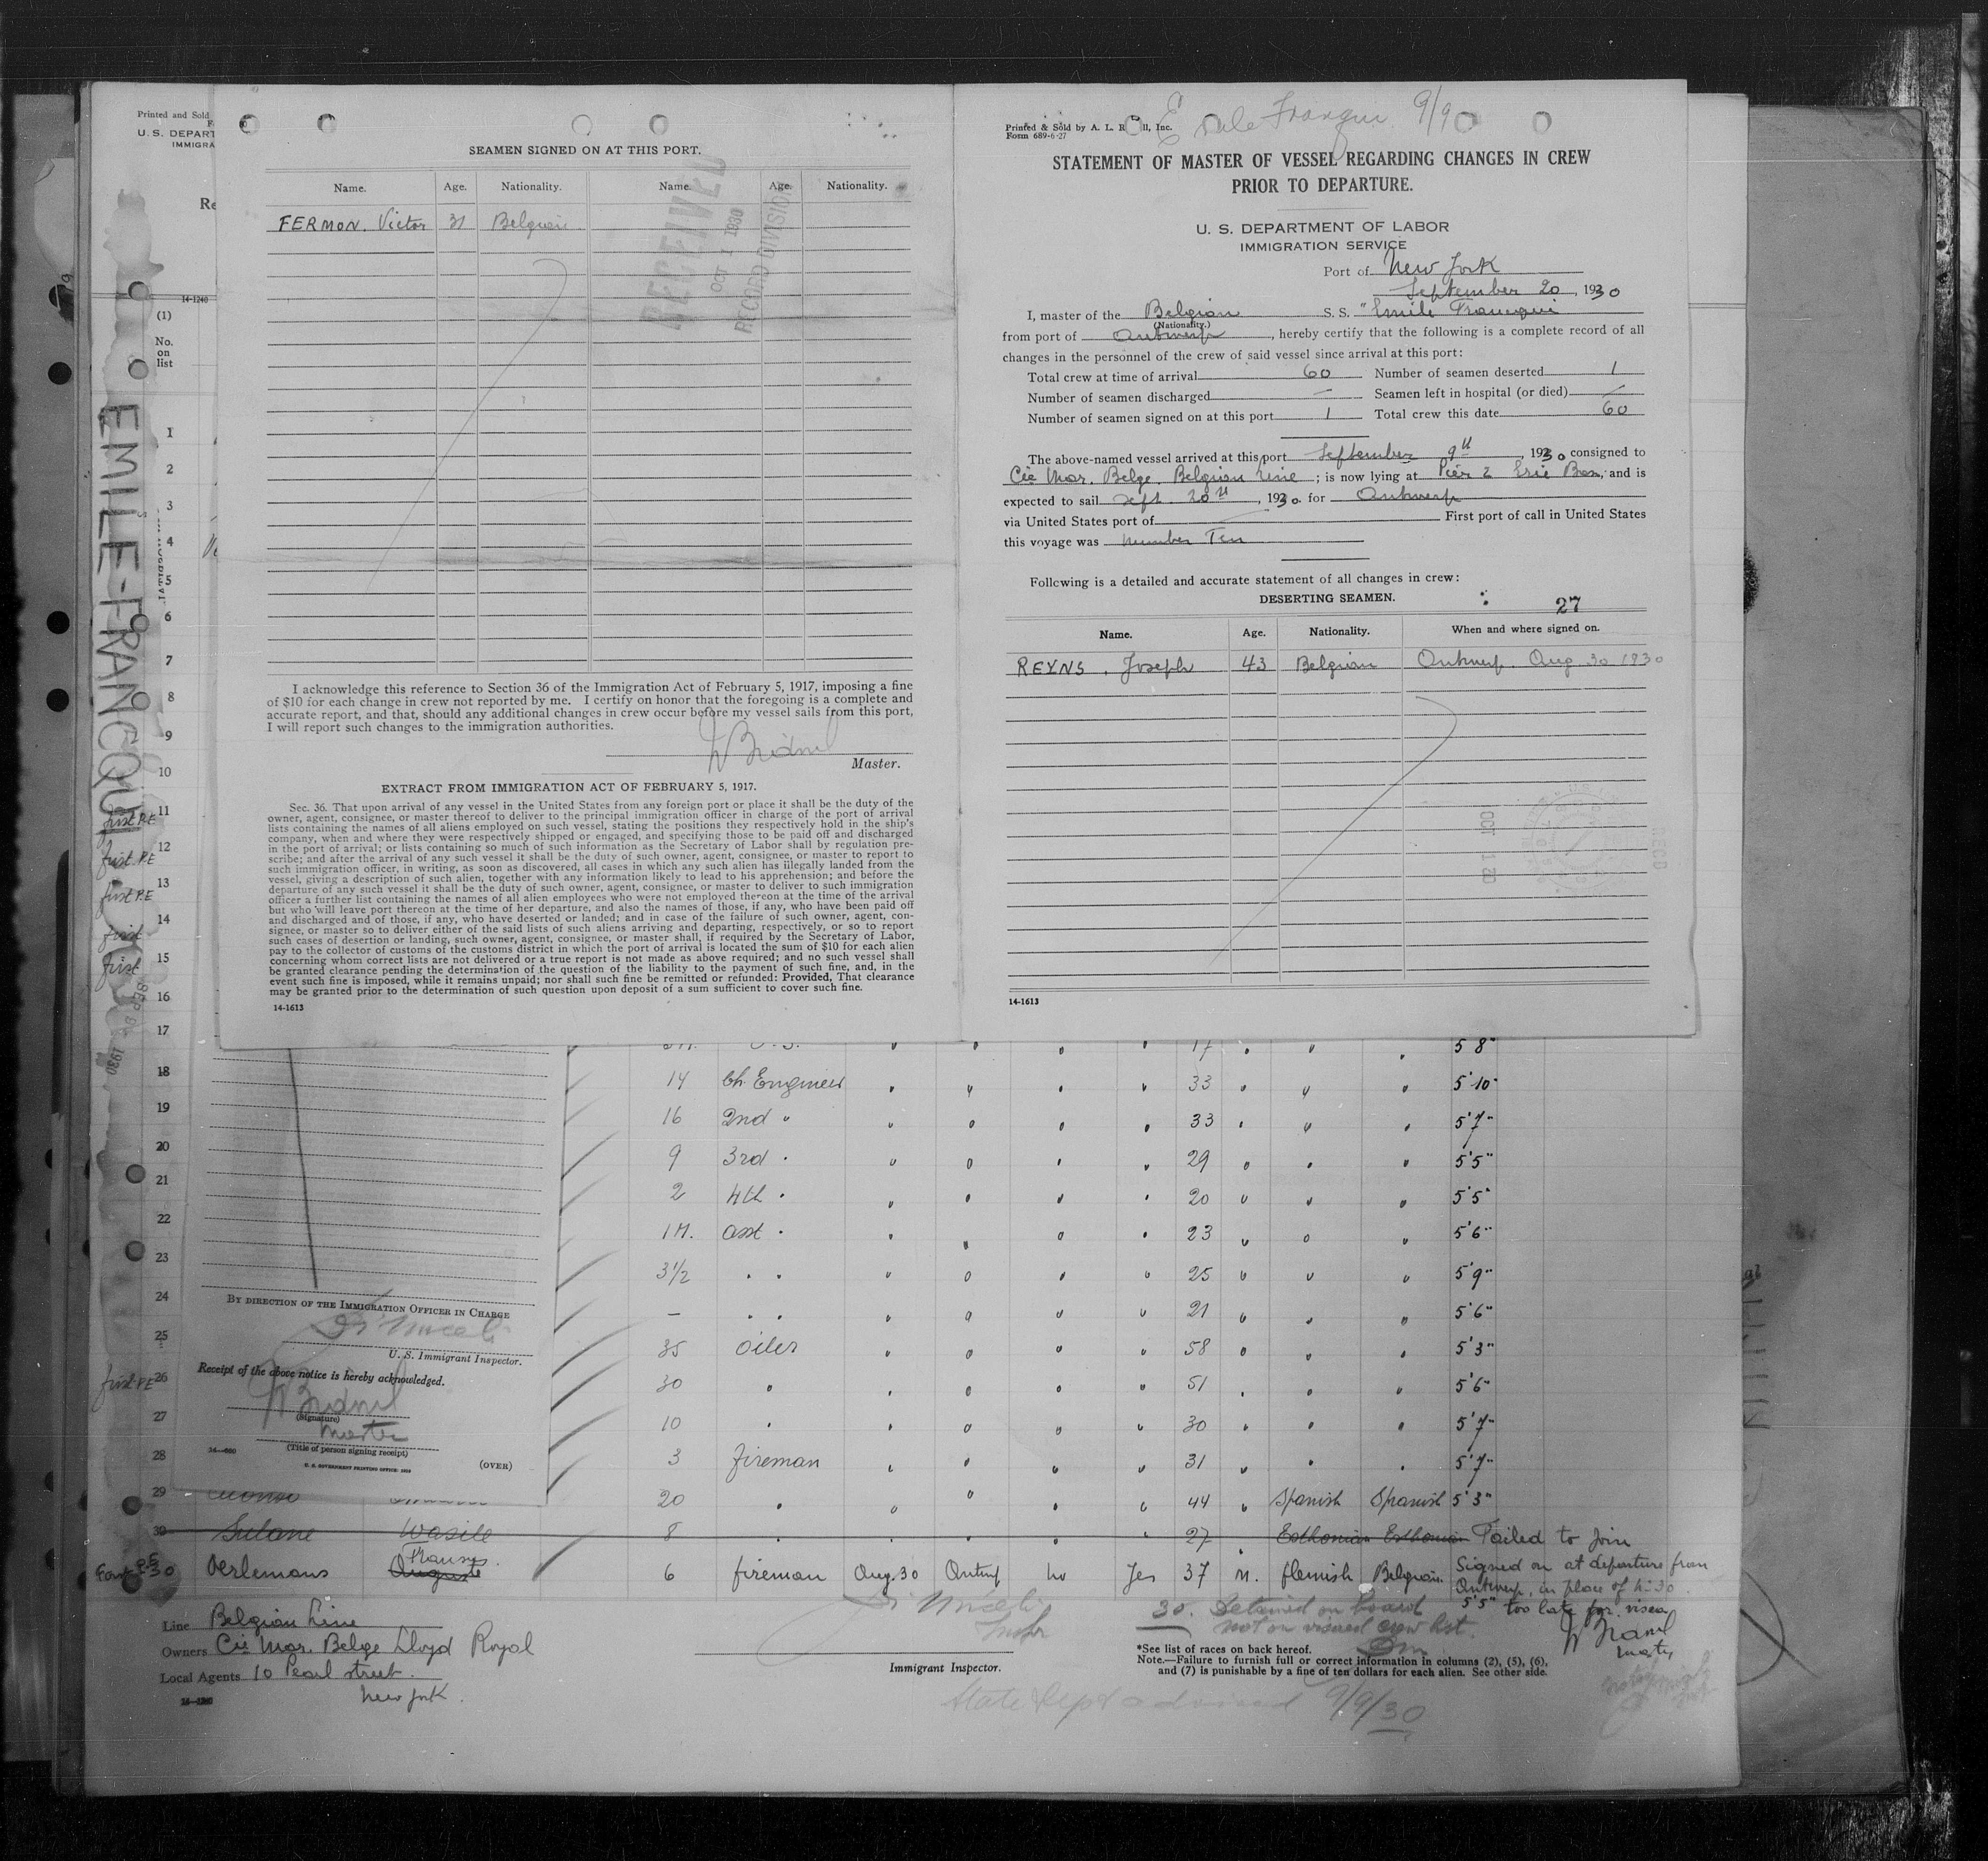 Printed and Sold
U. S. DEPART
IMMIGRA
Re
14-1240
(1)
No.
on
list
EMILE-FRANCQUI
SEAMEN SIGNED ON AT THIS PORT.
Name. Age. Nationality. Name. Age. Nationality.
FERMON. Victor 31 Belgian
RECEIVED
OCT 1 1930
RECORD DIVISION
I acknowledge this reference to Section 36 of the Immigration Act of February 5, 1917, imposing a fine
of $10 for each change in crew not reported by me. I certify on honor that the foregoing is a complete and
accurate report, and that, should any additional changes in crew occur before my vessel sails from this port,
I will report such changes to the immigration authorities.
Master.
EXTRACT FROM IMMIGRATION ACT OF FEBRUARY 5, 1917.
Sec. 36. That upon arrival of any vessel in the United States from any foreign port or place it shall be the duty of the
owner, agent, consignee, or master thereof to deliver to the principal immigration officer in charge of the port of arrival
lists containing the names of all aliens employed on such vessel, stating the positions they respectively hold in the ship's
company, when and where they were respectively shipped or engaged, and specifying those to be paid off and discharged
in the port of arrival; or lists containing so much of such information as the Secretary of Labor shall by regulation pre-
scribe; and after the arrival of any such vessel it shall be the duty of such owner, agent, consignee, or master to report to
such immigration officer, in writing, as soon as discovered, all cases in which any such alien has illegally landed from the
vessel, giving a description of such alien, together with any information likely to lead to his apprehension; and before the
departure of any such vessel it shall be the duty of such owner, agent, consignee, or master to deliver to such immigration
officer a further list containing the names of all alien employees who were not employed thereon at the time of the arrival
but who will leave port thereon at the time of her departure, and also the names of those, if any, who have been paid off
and discharged and of those, if any, who have deserted or landed; and in case of the failure of such owner, agent, con-
signee, or master so to deliver either of the said lists of such aliens arriving and departing, respectively, or so to report
such cases of desertion or landing, such owner, agent, consignee, or master shall, if required by the Secretary of Labor,
pay to the collector of customs of the customs district in which the port of arrival is located the sum of $10 for each alien
concerning whom correct lists are not delivered or a true report is not made as above required; and no such vessel shall
be granted clearance pending the determination of the question of the liability to the payment of such fine, and, in the
event such fine is imposed, while it remains unpaid; nor shall such fine be remitted or refunded: Provided, That clearance
may be granted prior to the determination of such question upon deposit of a sum sufficient to cover such fine.
14-1613
9/9
Printed & Sold by A. L. R ll, Inc.
Form 689-6-27
STATEMENT OF MASTER OF VESSEL REGARDING CHANGES IN CREW
PRIOR TO DEPARTURE.
U. S. DEPARTMENT OF LABOR
IMMIGRATION SERVICE
Port of New York
September 20, 1930
I, master of the Belgian S. S. "Emile Francqui
(Nationality.)
from port of Antwerp, hereby certify that the following is a complete record of all
changes in the personnel of the crew of said vessel since arrival at this port:
Total crew at time of arrival 60 Number of seamen deserted 1
Number of seamen discharged — Seamen left in hospital (or died) —
Number of seamen signed on at this port 1 Total crew this date 60
The above-named vessel arrived at this port September 9th, 1930 consigned to
Cie Mar. Belge. Belgian Line; is now lying at Pier 2 Erie Bas, and is
expected to sail Sept. 20th, 1930 for Antwerp
via United States port of First port of call in United States
this voyage was number Ten
Following is a detailed and accurate statement of all changes in crew:
DESERTING SEAMEN. 27
Name. Age. Nationality. When and where signed on.
REYNS, Joseph 43 Belgian Antwerp. Aug 30 1930
OCT 1 30
14-1613
1
2
3
4
5
6
7
8
9
10
first P.E 11
first P.E 12
first P.E 13
first 14
first 15
16
SEP 1930
17 17 5 8"
18 14 Ch Engineer 33 5'10"
19 16 2nd " 33 5'7"
20 9 3rd " 29 5'5"
21 2 4th " 20 5'5"
22 1 M. asst " 23 5'6"
23 3 1/2 " " 25 5'9"
24 — " " 21 5'6"
25 35 Oiler 58 5'3"
first P.E 26 30 " 51 5'6"
27 10 " 30 5'7"
28 3 fireman 31 5'7"
29 20 " 44 Spanish Spanish 5'3"
30 Wasill 8 27 Esthonian Esthonian Failed to Join
BY DIRECTION OF THE IMMIGRATION OFFICER IN CHARGE
U. S. Immigrant Inspector.
Receipt of the above notice is hereby acknowledged.
(Signature)
Master
(Title of person signing receipt)
U. S. GOVERNMENT PRINTING OFFICE
(OVER)
30 Oerlemans Auguste Frans. 6 fireman Aug. 30 Antwp no Yes 37 M. flemish Belgian Signed on at departure from
Antwerp, in place of No 30.
5'5" too late for visea
Master
Line Belgian Line
Owners Cie Mar. Belge Lloyd Royal
Local Agents 10 Pearl street.
New York.
30. Detained on board
not on visaed crew list.
Immigrant Inspector.
*See list of races on back hereof.
Note.—Failure to furnish full or correct information in columns (2), (5), (6),
and (7) is punishable by a fine of ten dollars for each alien. See other side.
State Dept advised 9/9/30